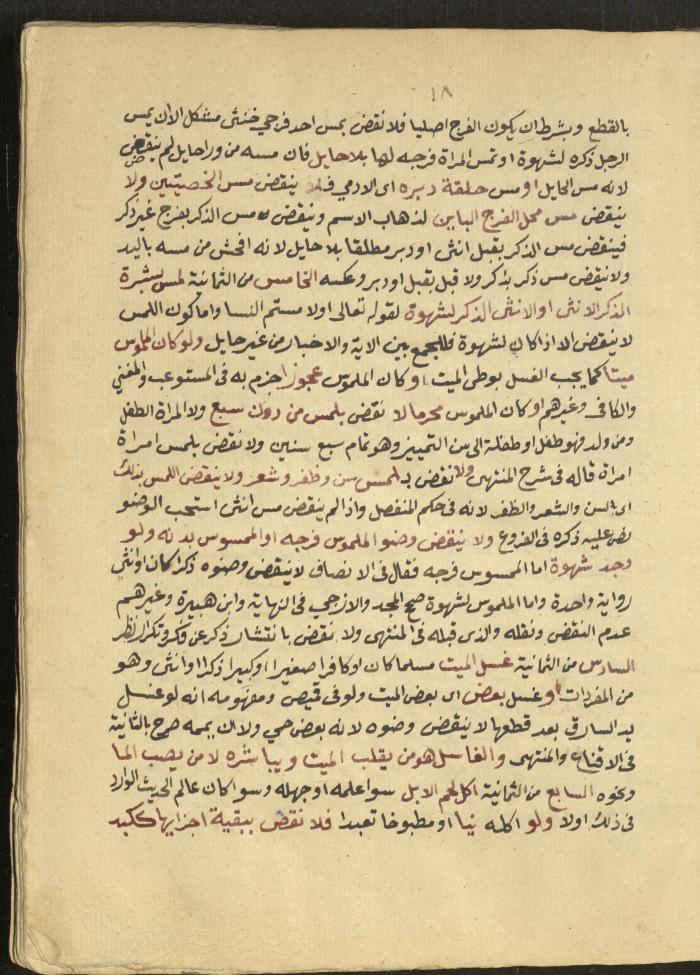 ١٨
بالقطع وبشرط ان يكون الفرج اصليا فلا نقض بمس احد فرجي خنثى مشكل الا ان يمس
الرجل ذكره لشهوة او تمس المراة فرجه لها بلا حايل فان مسه من ورا حايل لم ينقض
لانه مس الحايل او مس حلقة دبره اى الادمي فلا ينقض مس الخصيتين ولا
ينقض مس محل الفرج الباين لذهاب الاسم وينقض مس الذكر بفرج غير ذكر
فينقض مس الذكر بقبل انثى او دبر مطلقا بلا حايل لانه افحش من مسه باليد
ولا ينقض مس ذكر بذكر ولا قبل بقبل او دبر وعكسه الخامس من الثمانية لمس بشرة
الذكر الانثى او الانثى الذكر لشهوة لقوله تعالى اولا مستم النسا واما كون اللمس
لا ينقض الا اذا كان لشهوة فللجمع بين الاية والاخبار من غير حايل ولو كان الملموس
ميتا كما يجب الغسل بوطى الميت او كان الملموس عجوزا جزم به فى المستوعب والمغني
والكافى وغيرهم او كان الملموس محرما لا نقض بلمس من دون سبع ولا المراة الطفل
ومن ولد فهو طفل او طفلة الى سن التمييز وهو تمام سبع سنين ولا نقض بلمس امراة
امراة قاله فى شرح المنتهى ولا نقض بلمس سن وظفر وشعر ولا ينقض اللمس بذلك
اى بالسن والشعر والظفر لانه فى حكم المنفصل واذا لم ينقض مس انثى استحب الوضو
نص عليه ذكره فى الفروع ولا ينقض وضو الملموس فرجه او الممسوس بدنه ولو
وجد شهوة اما الممسوس فرجه فقال فى الانصاف لا ينقض وضوه ذكرا كان او انثى
رواية واحدة واما الملموس لشهوة صحح المجد والازجي فى النهاية وابن هبيرة وغيرهم
عدم النقض ونقله والذى قبله فى المنتهى ولا نقض بانتشار ذكر عن فكر وتكرار نظر
السادس من الثمانية غسل الميت مسلما كان او كافرا صغيرا او كبيرا ذكرا او انثى وهو
من المفردات او غسل بعض اى بعض الميت ولو فى قميص ومفهومه انه لو غسل
يد السارق بعد قطعها لا ينقض وضوه لانه بعض حي ولا ان يممه صرح بالثانية
فى الاقناع والمنتهى والغاسل هو من يقلب الميت ويباشره لا من يصب الما
ونحوه السابع من الثمانية اكل لحم الابل سوا علمه او جهله وسوا كان عالم الحديث الوارد
فى ذلك اولا ولو اكله نيا او مطبوخا تعبدا فلا نقض ببقية اجزايها ككبد